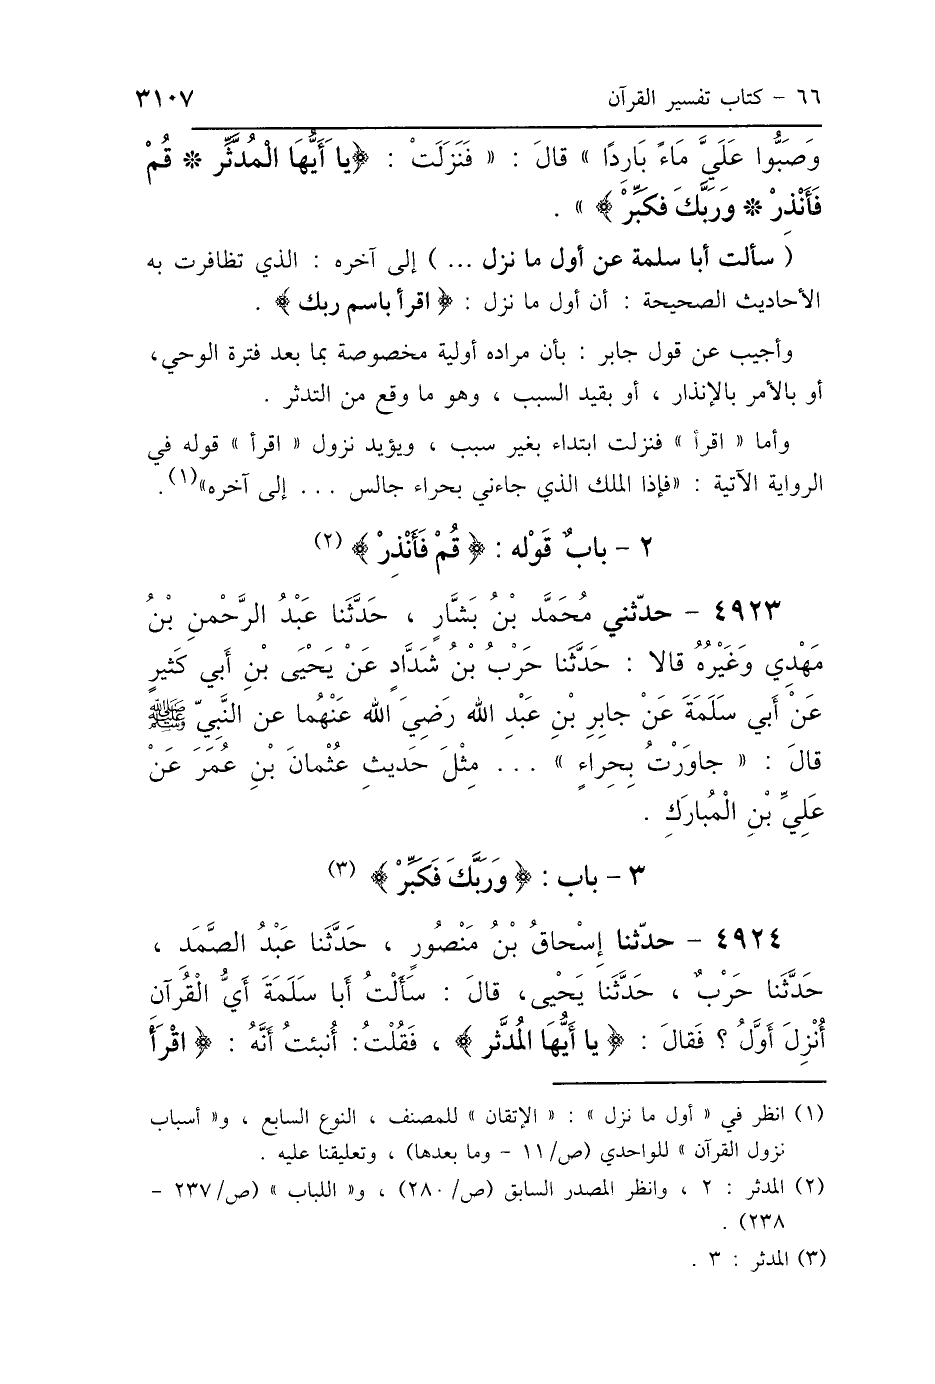 ٦٦ – كتاب تفسير القرآن ٣١٠٧
وَصَبُّوا عَلَيَّ مَاءً بَارِدًا » قالَ : « فَنَزَلَتْ : ﴿يا أَيُّهَا الْمُدَّثِّر * قُمْ
فَأَنْذِرْ * وَرَبَّكَ فَكَبِّرْ ﴾ » .
( سألت أبا سلمة عن أول ما نزل ... ) إلى آخره : الذي تظافرت به
الأحاديث الصحيحة : أن أول ما نزل : ﴿ اقرأ باسم ربك ﴾ .
وأجيب عن قول جابر : بأن مراده أولية مخصوصة بما بعد فترة الوحي،
أو بالأمر بالإنذار ، أو بقيد السبب ، وهو ما وقع من التدثر .
وأما « اقرأ » فنزلت ابتداء بغير سبب ، ويؤيد نزول « اقرأ » قوله في
الرواية الآتية : «فإذا الملك الذي جاءني بحراء جالس ... إلى آخره»(١).
٢ – بابٌ قَوْله : ﴿ قُمْ فَأَنْذِرْ ﴾ (٢)
٤٩٢٣ – حدّثني مُحَمَّد بْنُ بَشَّارٍ ، حَدَّثَنا عَبْدُ الرَّحْمنِ بْنُ
مَهْدِي وَغَيْرُهُ قالا : حَدَّثَنا حَرْبُ بْنُ شَدَّادٍ عَنْ يَحْيَى بْنِ أَبي كَثيرٍ
عَنْ أَبي سَلَمَةَ عَنْ جابِرِ بْنِ عَبْدِ الله رَضِيَ الله عَنْهُما عن النَّبِيّ ﷺ
قالَ : « جاوَرْتُ بِحِراءٍ » ... مِثْلَ حَديثِ عُثْمانَ بْنِ عُمَرَ عَنْ
عَلِيِّ بْنِ الْمُبارَكِ .
٣ – باب : ﴿ وَرَبَّكَ فَكَبِّرْ ﴾ (٣)
٤٩٢٤ – حدّثنا إِسْحاقُ بْنُ مَنْصُورٍ ، حَدَّثَنا عَبْدُ الصَّمَدِ ،
حَدَّثَنا حَرْبٌ ، حَدَّثَنا يَحْيى، قالَ : سَأَلْتُ أَبا سَلَمَةَ أَيُّ الْقُرآنِ
أُنْزِلَ أَوَّلُ ؟ فَقالَ : ﴿ يا أَيُّهَا الْمُدَّثِّر ﴾ ، فَقُلْتُ: أُنبئتُ أَنَّهُ : ﴿ اقْرَأْ
(١) انظر في « أول ما نزل » : « الإتقان » للمصنف ، النوع السابع ، و« أسباب
نزول القرآن » للواحدي (ص/ ١١ – وما بعدها) ، وتعليقنا عليه .
(٢) المدثر : ٢ ، وانظر المصدر السابق (ص/ ٢٨٠) ، و« اللباب » (ص/ ٢٣٧ –
٢٣٨) .
(٣) المدثر : ٣ .